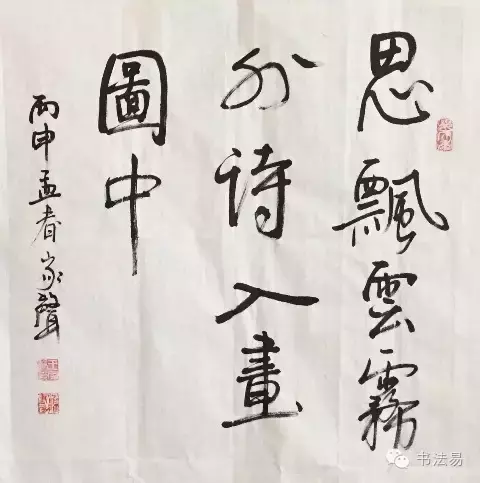 思飄雲霧
外诗入畫
圖中
丙申孟春家聲
书法易